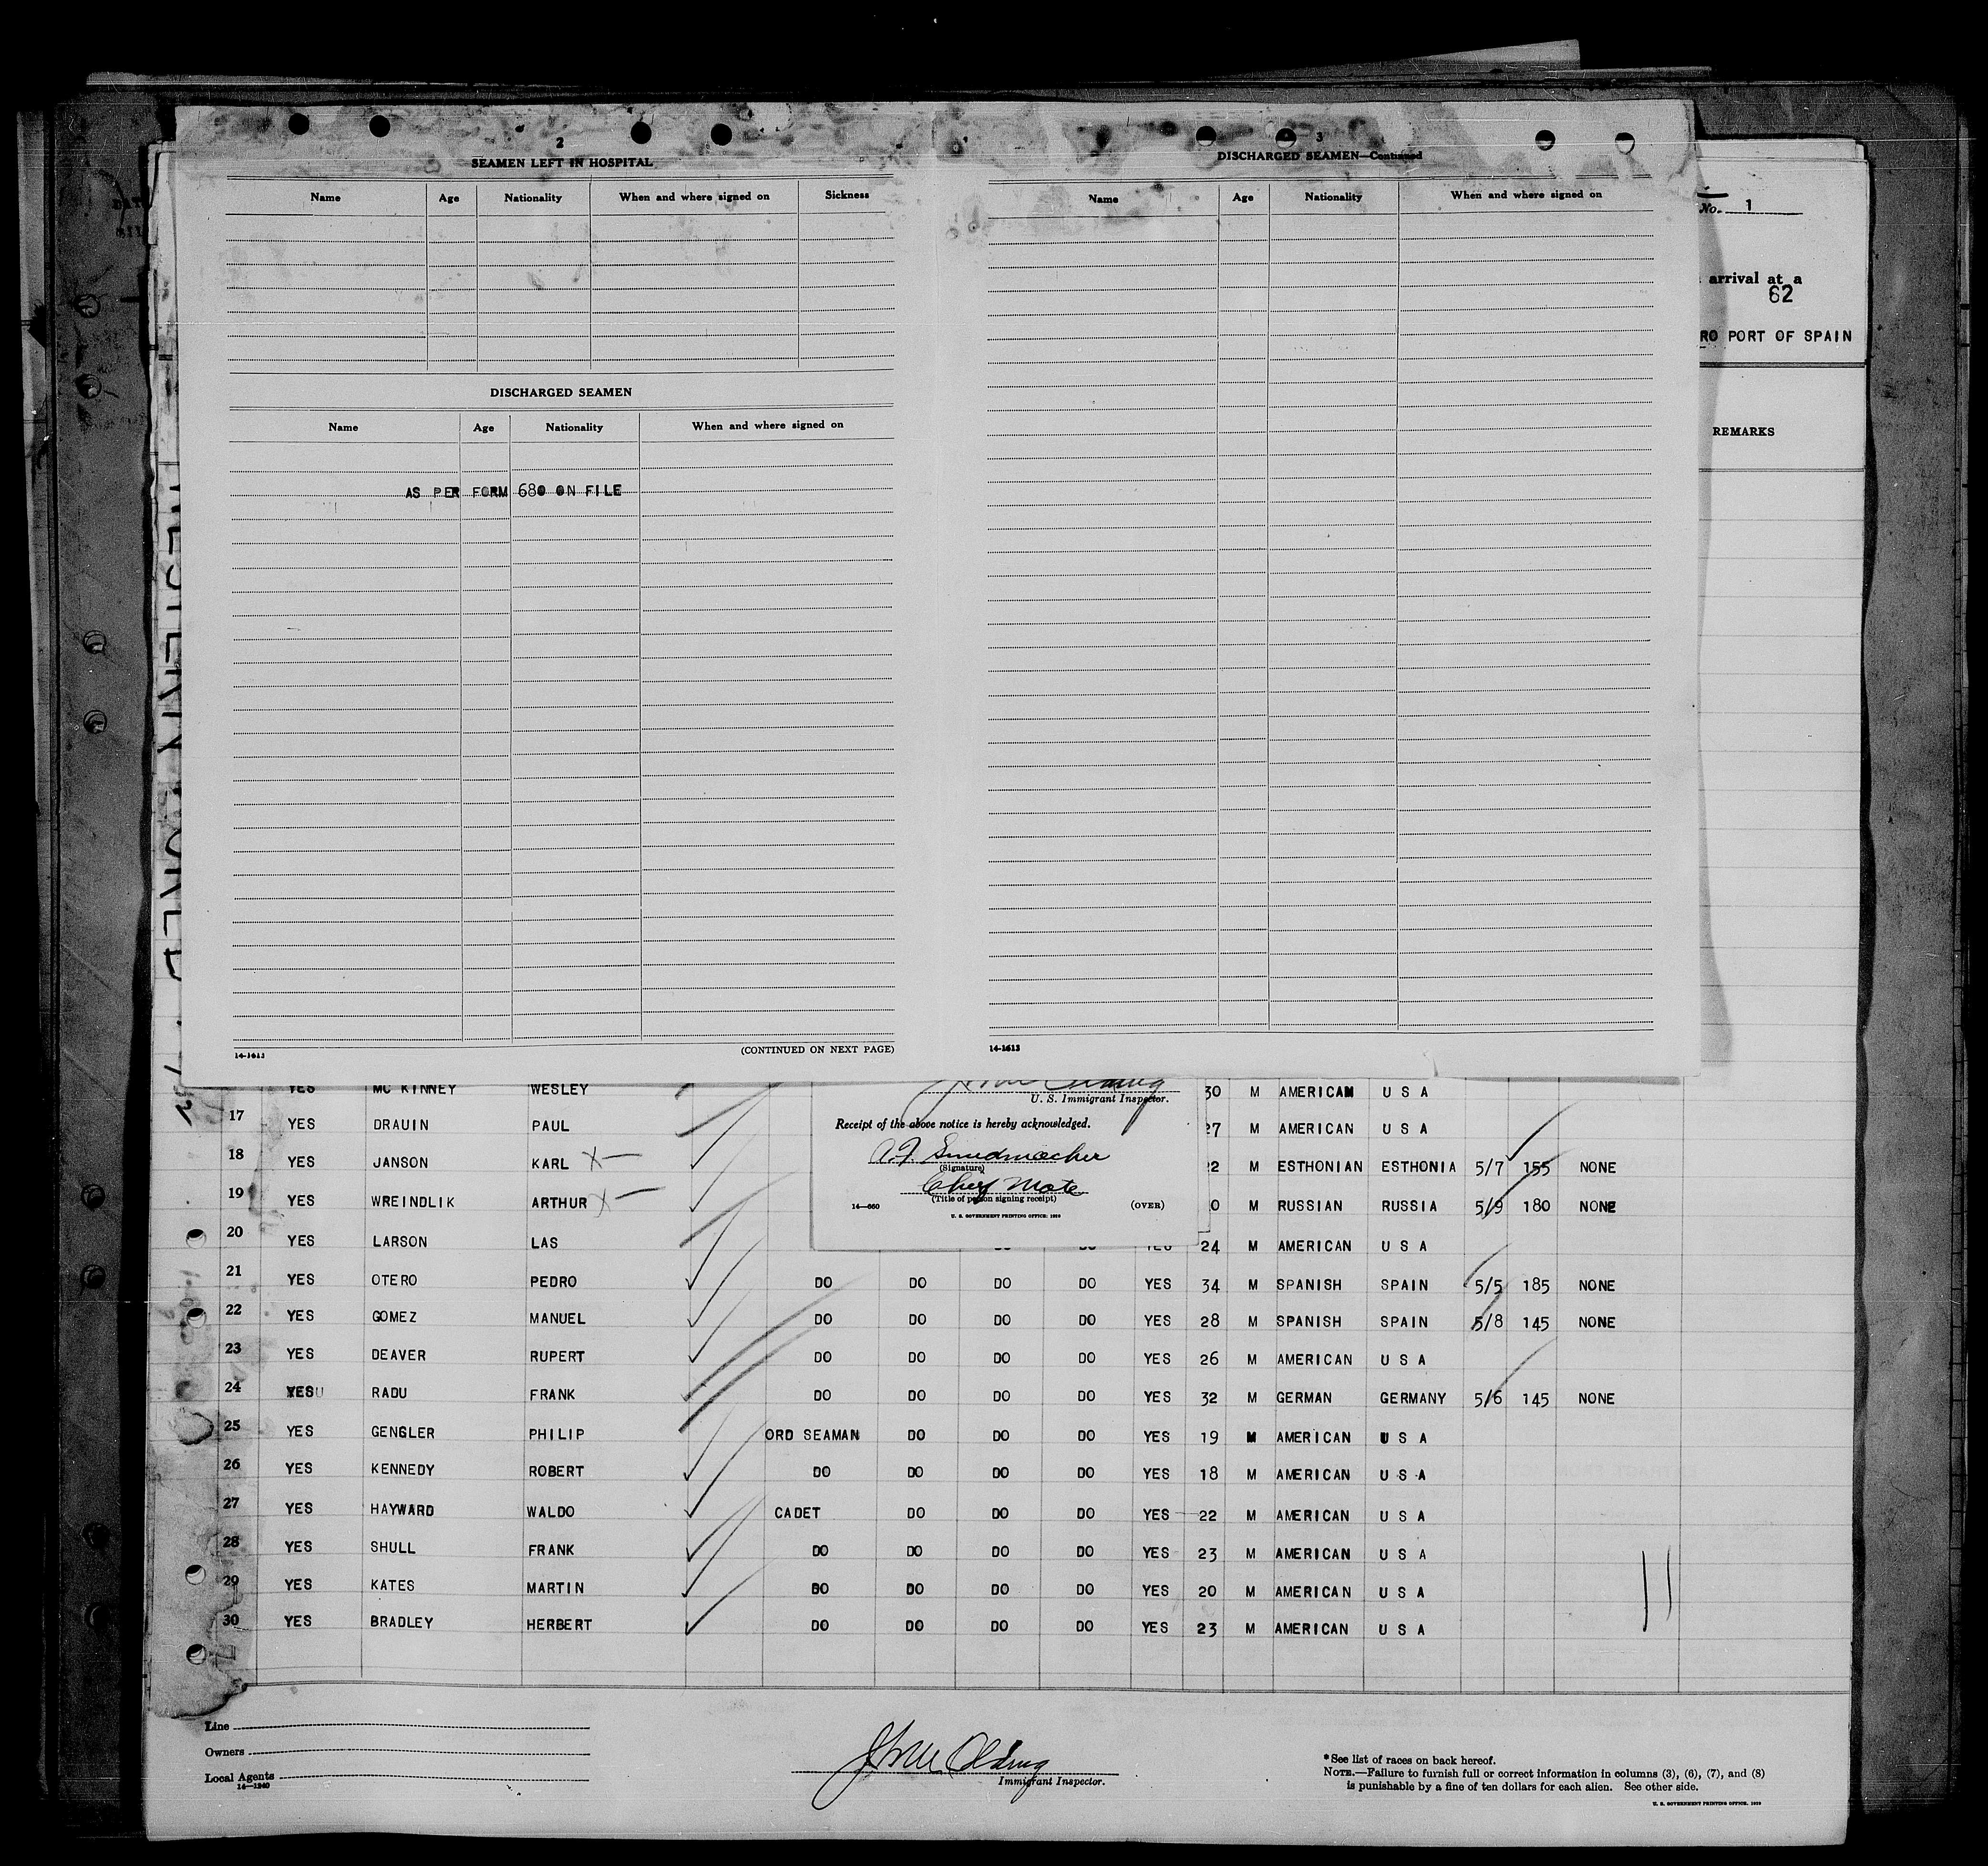 2
SEAMEN LEFT IN HOSPITAL
Name Age Nationality When and where signed on Sickness
DISCHARGED SEAMEN
Name Age Nationality When and where signed on
AS PER FORM 680 ON FILE
14-1613
(CONTINUED ON NEXT PAGE)
3
DISCHARGED SEAMEN—Continued
Name Age Nationality When and where signed on
14-1613
No. 1
arrival at a
62
RO PORT OF SPAIN
REMARKS
YES MC KINNEY WESLEY 30 M AMERICAN U S A
17 YES DRAUIN PAUL 27 M AMERICAN U S A
18 YES JANSON KARL X— 22 M ESTHONIAN ESTHONIA 5/7 155 NONE
19 YES WREINDLIK ARTHUR X— 0 M RUSSIAN RUSSIA 5/9 180 NONE
20 YES LARSON LAS DO DO YES 24 M AMERICAN U S A
21 YES OTERO PEDRO DO DO DO DO YES 34 M SPANISH SPAIN 5/5 185 NONE
22 YES GOMEZ MANUEL DO DO DO DO YES 28 M SPANISH SPAIN 5/8 145 NONE
23 YES DEAVER RUPERT DO DO DO DO YES 26 M AMERICAN U S A
24 YES RADU FRANK DO DO DO DO YES 32 M GERMAN GERMANY 5/6 145 NONE
25 YES GENGLER PHILIP ORD SEAMAN DO DO DO YES 19 M AMERICAN U S A
26 YES KENNEDY ROBERT DO DO DO DO YES 18 M AMERICAN U S A
27 YES HAYWARD WALDO CADET DO DO DO YES 22 M AMERICAN U S A
28 YES SHULL FRANK DO DO DO DO YES 23 M AMERICAN U S A
29 YES KATES MARTIN DO DO DO DO YES 20 M AMERICAN U S A
30 YES BRADLEY HERBERT DO DO DO DO YES 23 M AMERICAN U S A
U. S. Immigrant Inspector.
Receipt of the above notice is hereby acknowledged.
(Signature)
Chief Mate
(Title of person signing receipt)
14—660
(OVER)
U. S. GOVERNMENT PRINTING OFFICE: 1939
Line
Owners
Local Agents
14—1240
Immigrant Inspector.
*See list of races on back hereof.
NOTE.—Failure to furnish full or correct information in columns (3), (6), (7), and (8)
is punishable by a fine of ten dollars for each alien. See other side.
U. S. GOVERNMENT PRINTING OFFICE. 1939